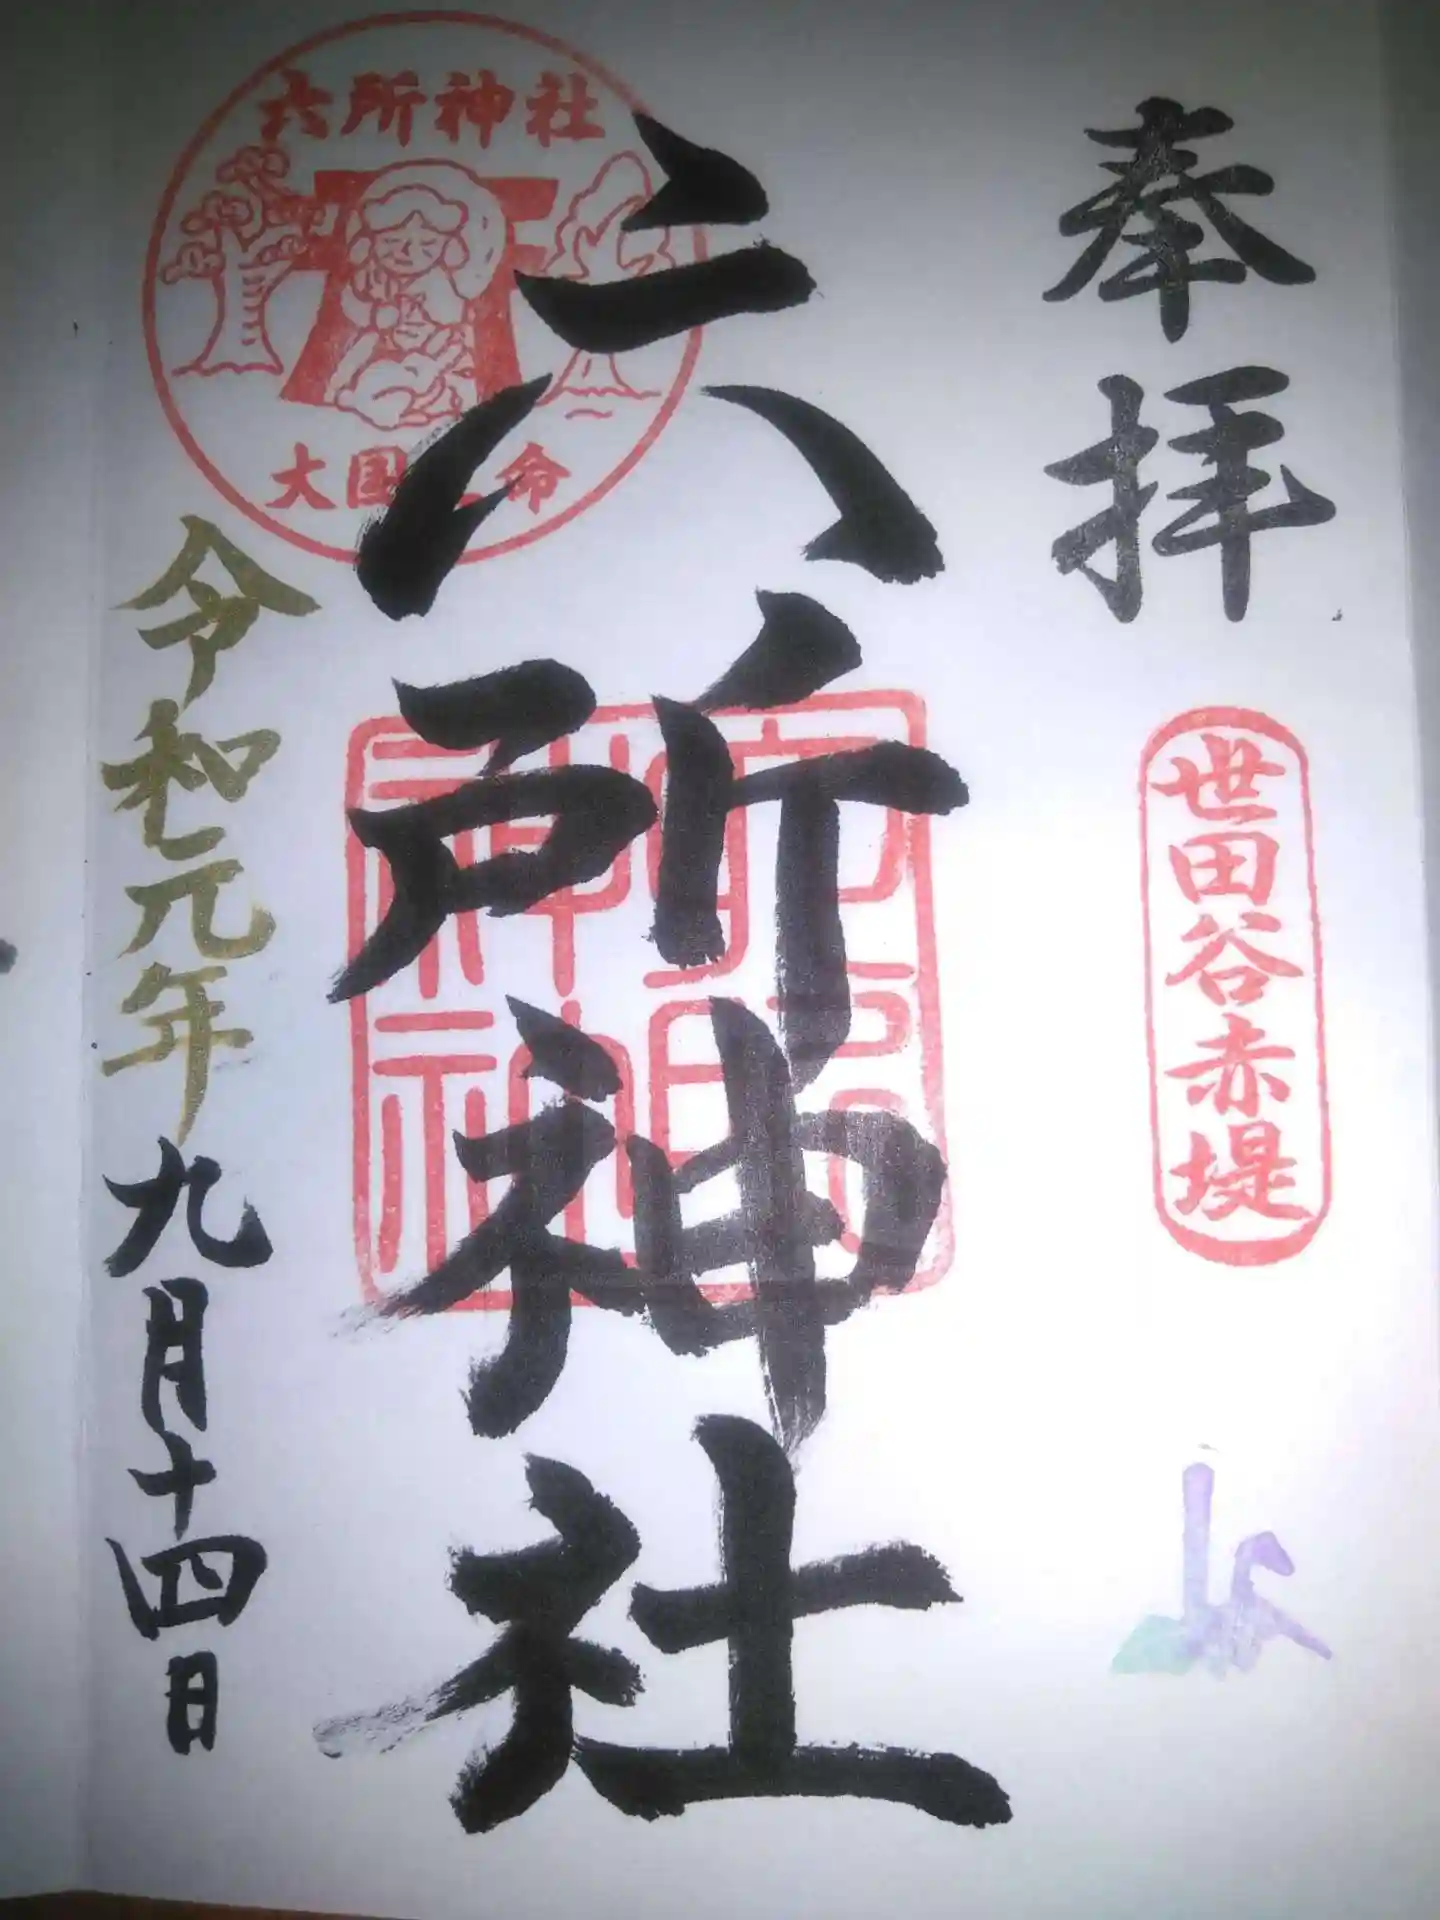 奉拝
世田谷赤堤
六所神社
六所神社
大国
命
六所神社
令和元年九月十四日